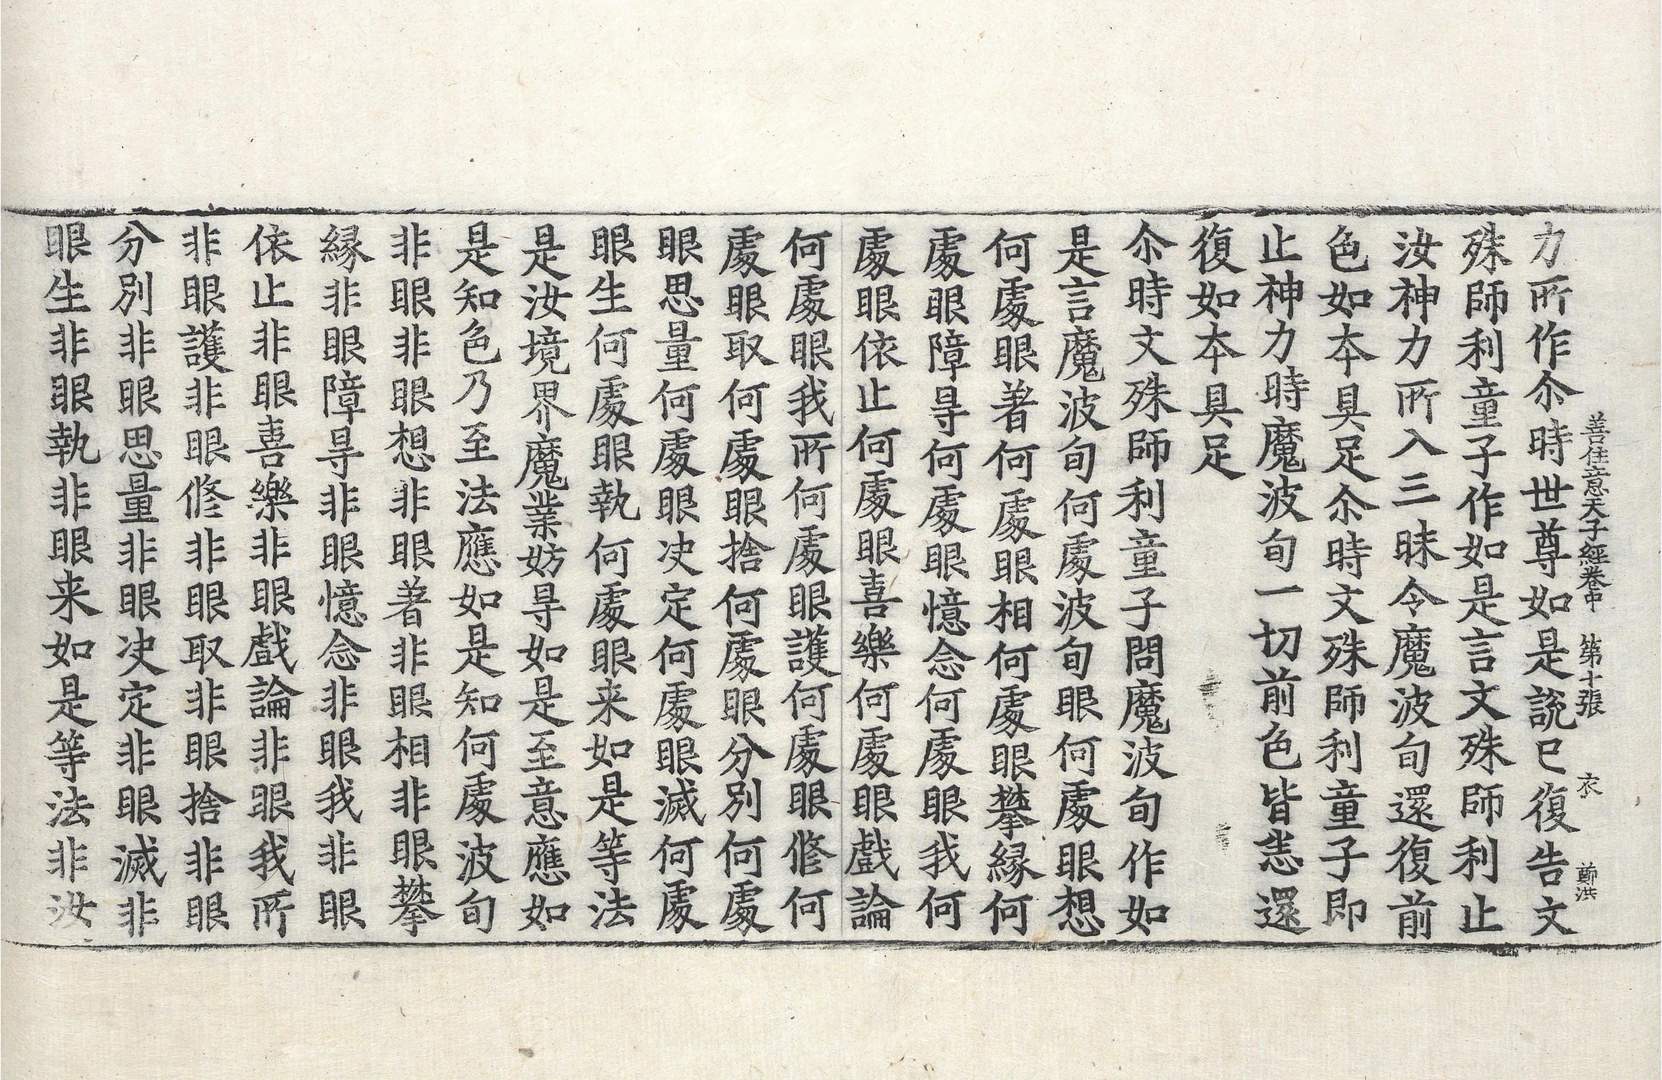 善住意天子經卷中 第十張 衣 鄭洪
力所作尒時世尊如是說已復告文
殊師利童子作如是言文殊師利止
汝神力所入三昧令魔波旬還復前
色如夲具足尒時文殊師利童子即
止神力時魔波旬一切前色皆悉還
復如夲具足
尒時文殊師利童子問魔波旬作如
是言魔波旬何處波旬眼何處眼想
何處眼著何處眼相何處眼攀緣何
處眼障㝵何處眼憶念何處眼我何
處眼依止何處眼喜樂何處眼戲論
何處眼我所何處眼護何處眼修何
處眼取何處眼捨何處眼分別何處
眼思量何處眼决定何處眼滅何處
眼生何處眼執何處眼来如是等法
是汝境界魔業妨㝵如是至意應如
是知色乃至法應如是知何處波旬
非眼非眼想非眼著非眼相非眼攀
緣非眼障㝵非眼憶念非眼我非眼
依止非眼喜樂非眼戲論非眼我所
非眼護非眼修非眼取非眼捨非眼
分別非眼思量非眼决定非眼滅非
眼生非眼執非眼来如是等法非汝